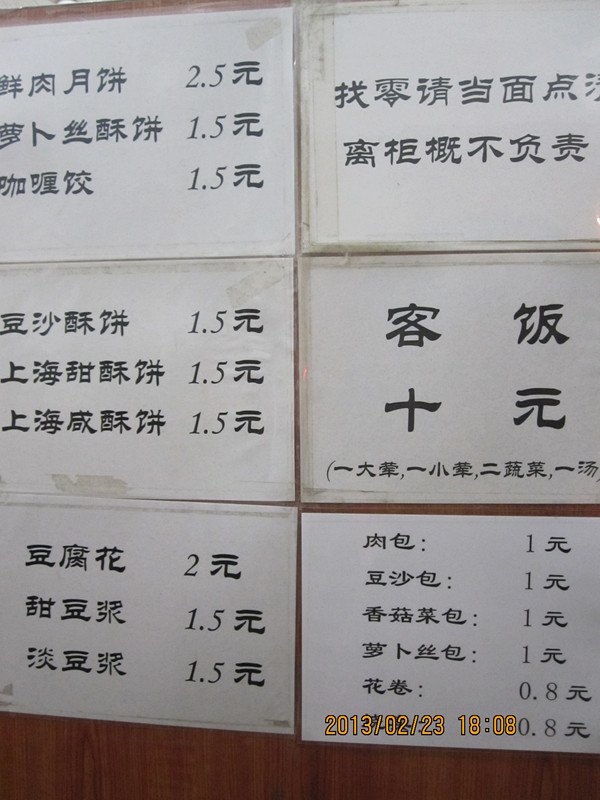 鲜肉月饼 2.5元
萝卜丝酥饼 1.5元
咖喱饺 1.5元
找零请当面点清
离柜概不负责
豆沙酥饼 1.5元
上海甜酥饼 1.5元
上海咸酥饼 1.5元
客 饭
十 元
(一大荤,一小荤,二蔬菜,一汤)
豆腐花 2元
甜豆浆 1.5元
淡豆浆 1.5元
肉包： 1元
豆沙包： 1元
香菇菜包： 1元
萝卜丝包： 1元
花卷： 0.8元
0.8元
2013/02/23 18:08